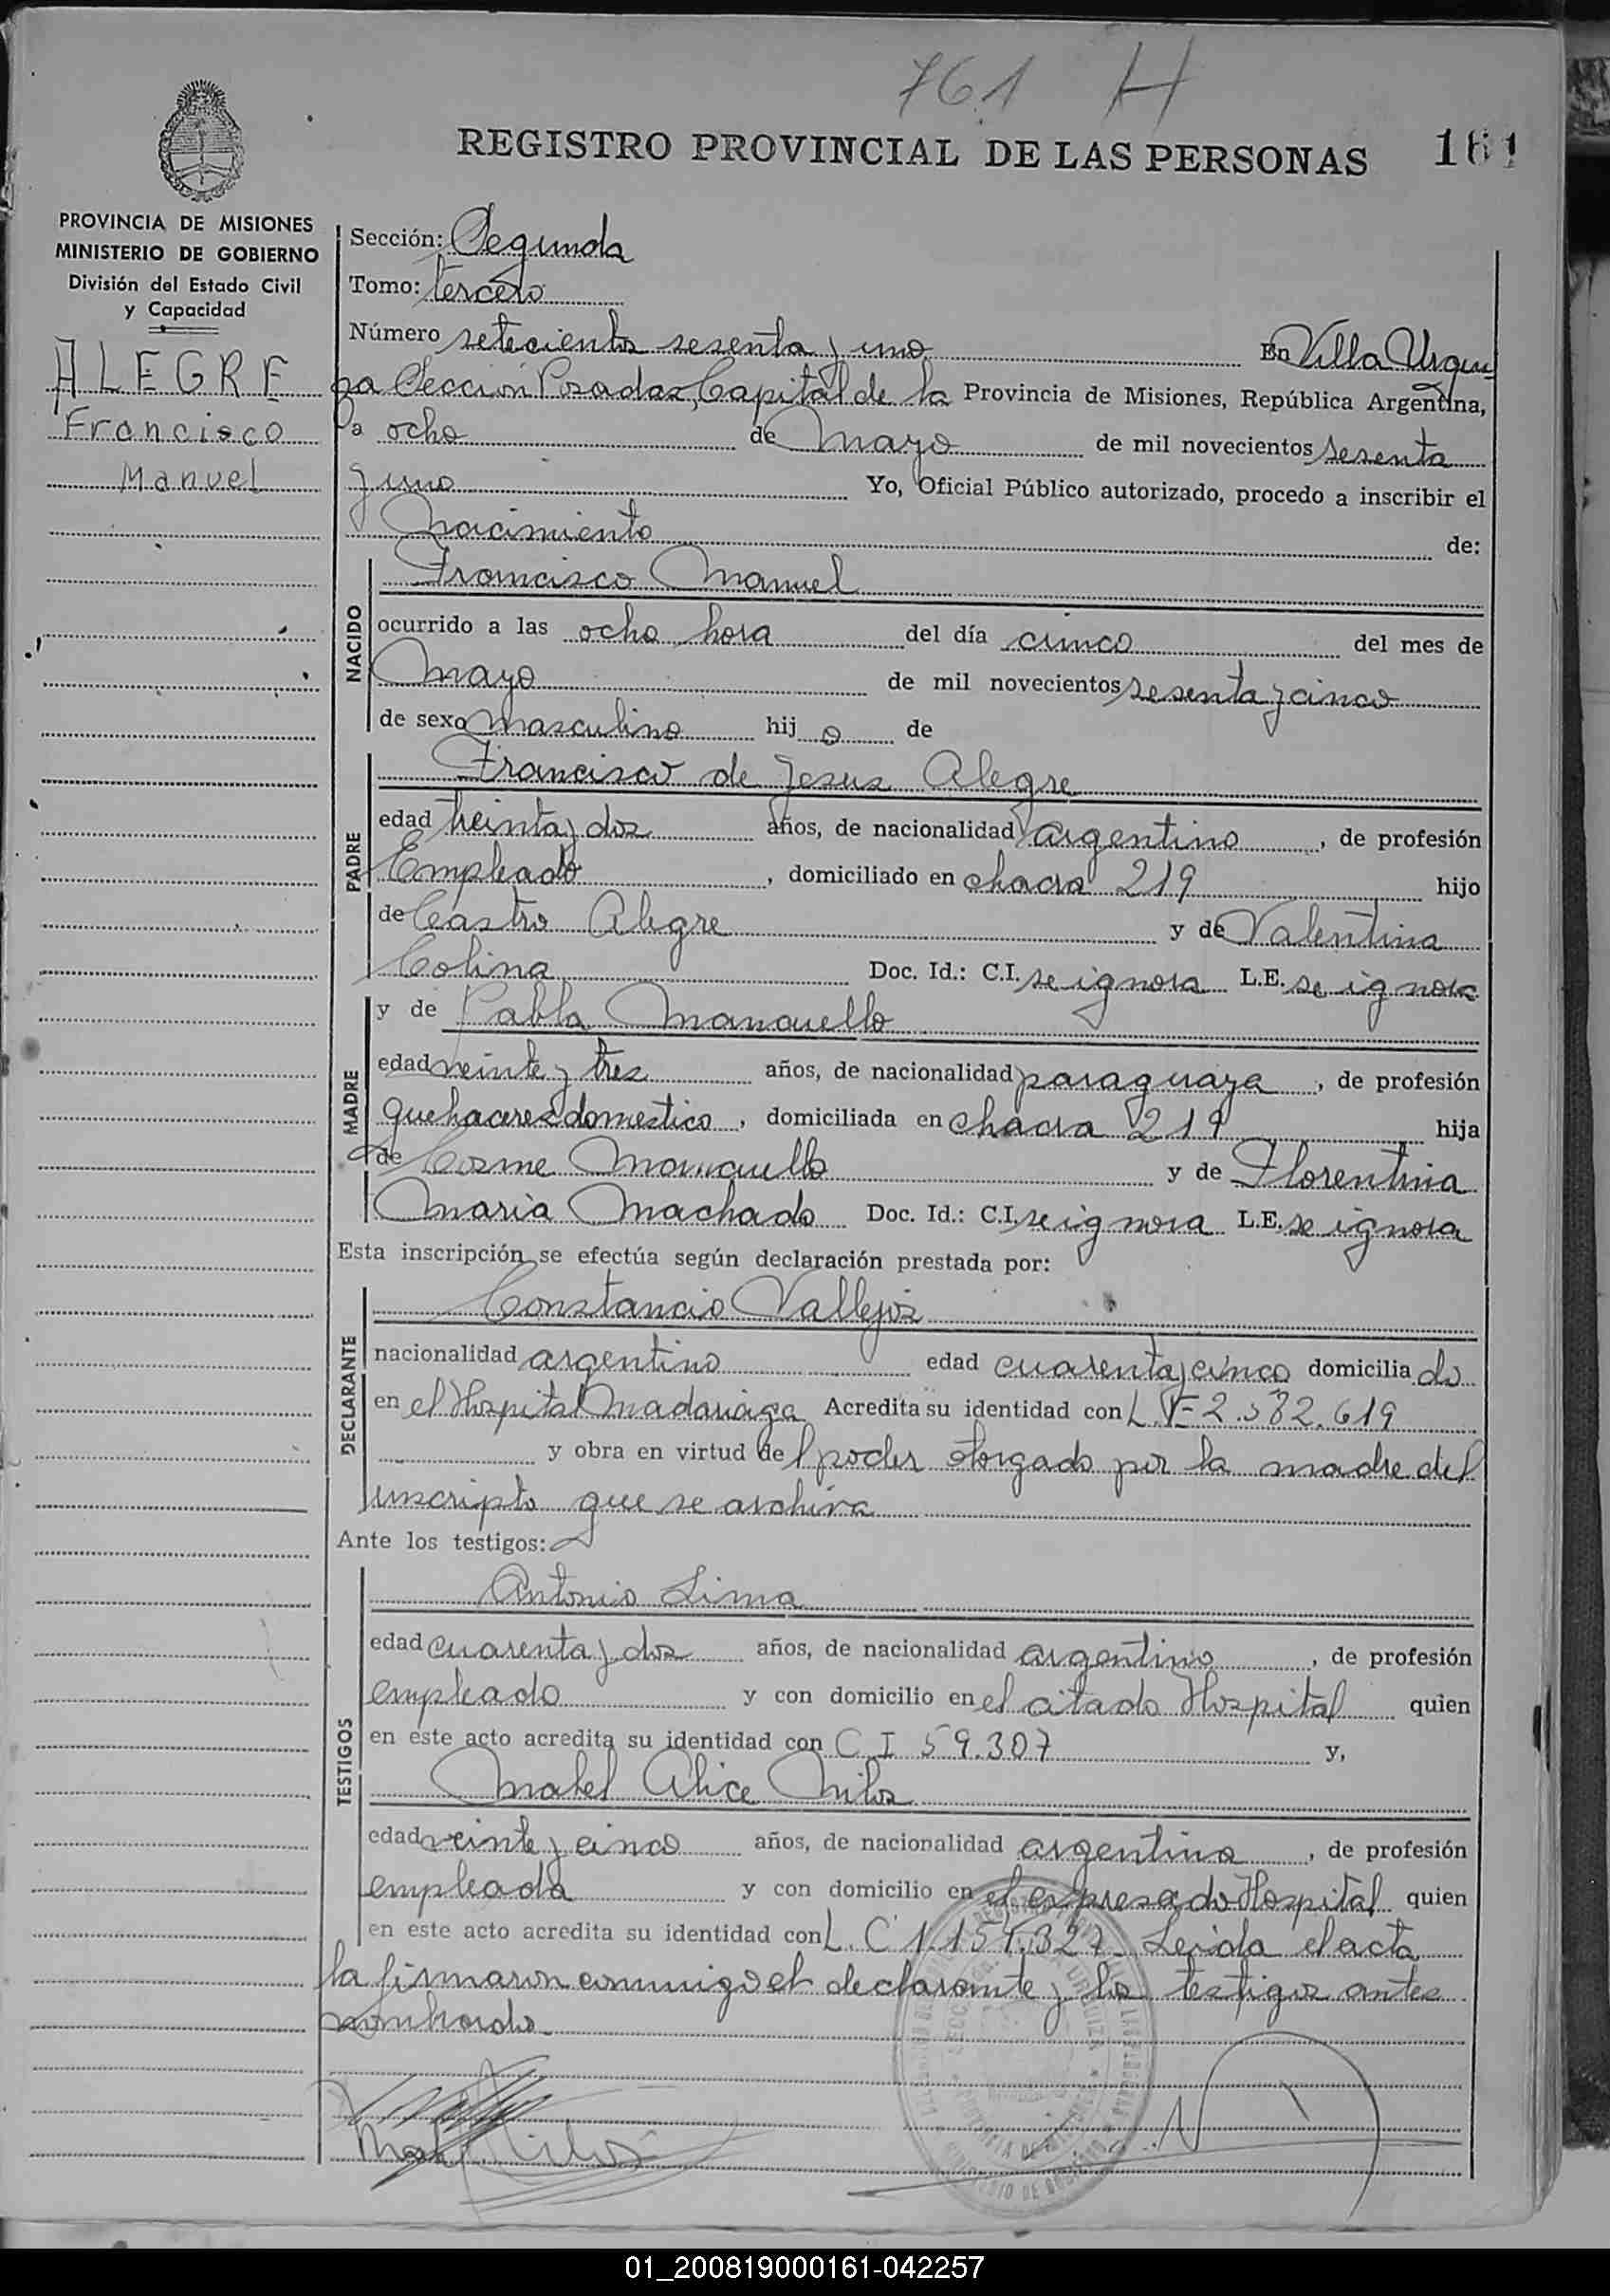 761 H
REGISTRO PROVINCIAL DE LAS PERSONAS 161
PROVINCIA DE MISIONES
MINISTERIO DE GOBIERNO
División del Estado Civil
y Capacidad
ALEGRE
Francisco
Manuel
Sección: Segunda
Tomo: tercero
Número setecientos sesenta y uno En Villa Urqui
za Sección Posadas, Capital de la Provincia de Misiones, República Argentina,
a ocho de Mayo de mil novecientos sesenta
y uno Yo, Oficial Público autorizado, procedo a inscribir el
Nacimiento de:
NACIDO
Francisco Manuel
ocurrido a las ocho hora del día cinco del mes de
Mayo de mil novecientos sesenta y cinco
de sexo Masculino hij o de
PADRE
Francisco de Jesus Alegre
edad treinta y dos años, de nacionalidad argentino, de profesión
Empleado, domiciliado en chacra 219 hijo
de Castro Alegre y de Valentina
Colina Doc. Id.: C.I. se ignora L.E. se ignora
MADRE
y de Pabla Mancuello
edad veinte y tres años, de nacionalidad paraguaya, de profesión
quehaceres domestico, domiciliada en chacra 219 hija
de Cosme Mancuello y de Florentina
Maria Machado Doc. Id.: C.I. se ignora L.E. se ignora
Esta inscripción se efectúa según declaración prestada por:
DECLARANTE
Constancio Vallejos
nacionalidad argentino edad cuarenta y cinco domicilia do
en el Hospital Madariaga Acredita su identidad con L.E 2.582.619
y obra en virtud de l poder otorgado por la madre del
inscripto que se archiva
Ante los testigos:
TESTIGOS
Antonio Lima
edad cuarenta y dos años, de nacionalidad argentino, de profesión
empleado y con domicilio en el citado Hospital quien
en este acto acredita su identidad con C I 59.307 y,
Mabel Alice Milos
edad veinte y cinco años, de nacionalidad argentina, de profesión
empleada y con domicilio en el expresado Hospital quien
en este acto acredita su identidad con L. C 1.154.327. Leida el acta
la firmaron conmigo el declarante y los testigos antes
nombrado
01_200819000161-042257